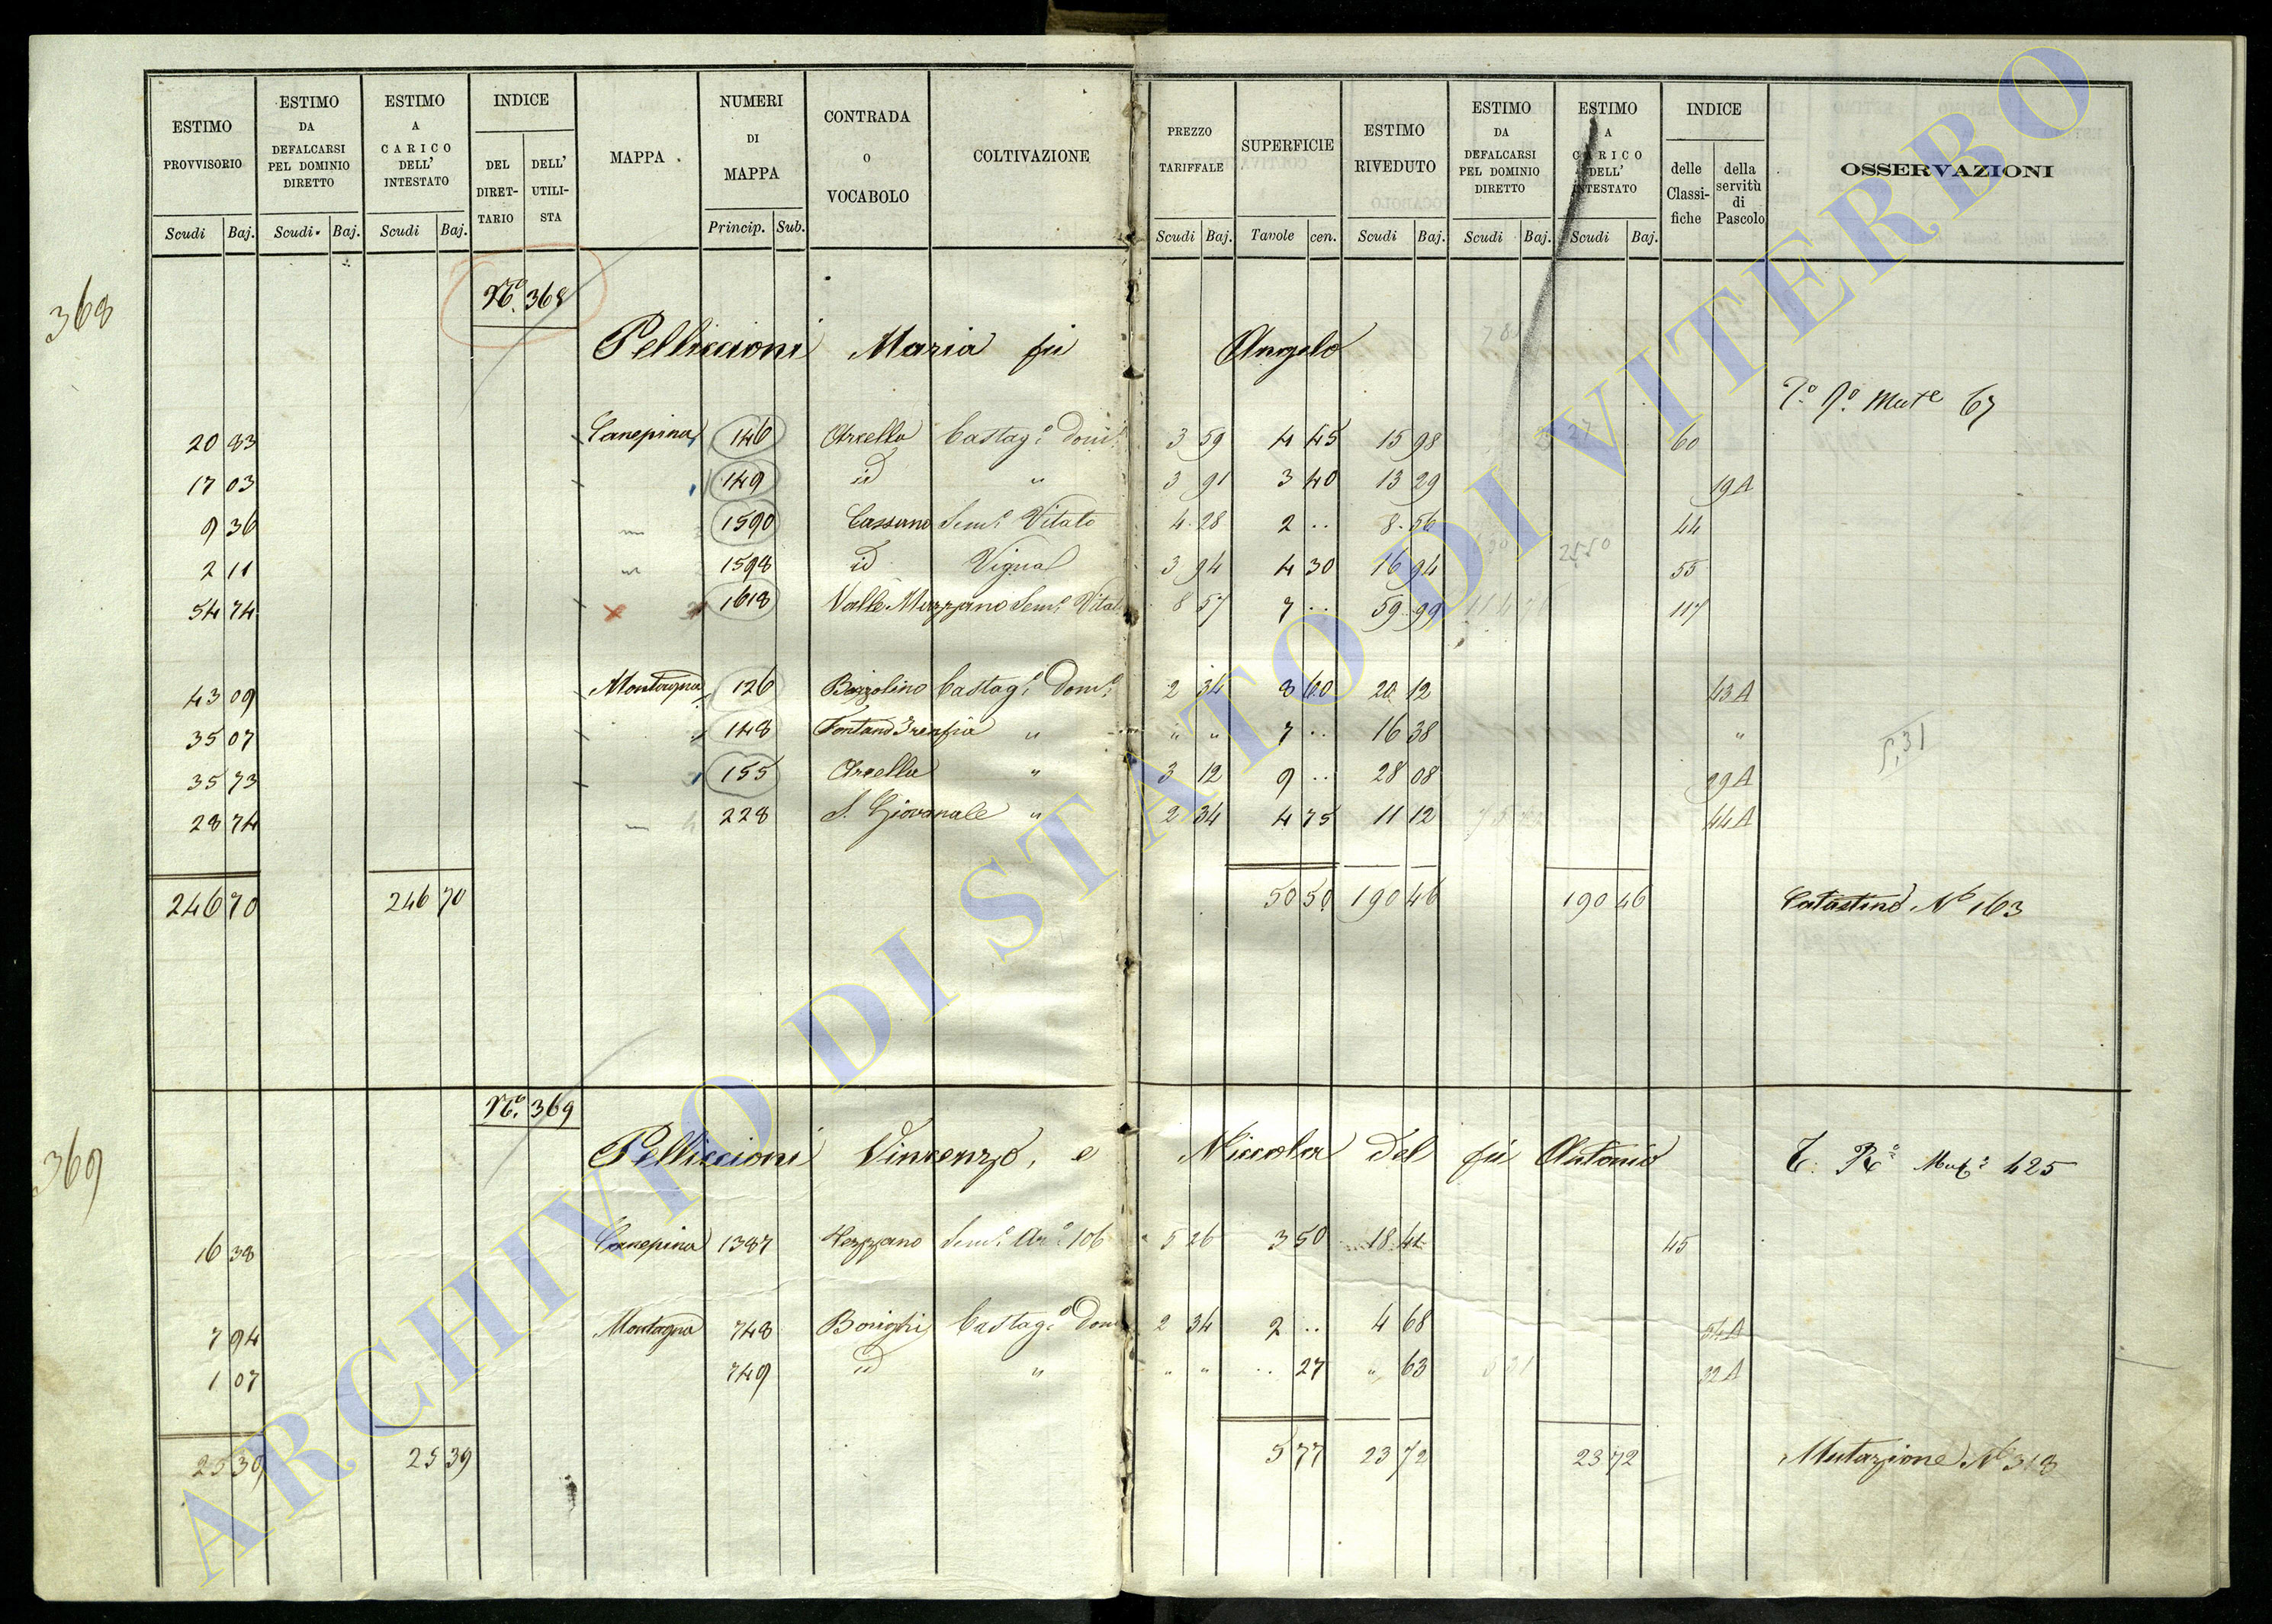 ESTIMO PROVVISORIO Scudi Baj.
ESTIMO DA DEFALCARSI PEL DOMINIO DIRETTO Scudi. Baj.
ESTIMO A CARICO DELL' INTESTATO Scudi Baj.
INDICE DEL DIRETTARIO DELL' UTILISTA
MAPPA
NUMERI DI MAPPA Princip. Sub.
CONTRADA O VOCABOLO
COLTIVAZIONE
PREZZO TARIFFALE Scudi Baj.
SUPERFICIE Tavole cen.
ESTIMO RIVEDUTO Scudi Baj.
ESTIMO DA DEFALCARSI PEL DOMINIO DIRETTO Scudi Baj.
ESTIMO A CARICO DELL' INTESTATO Scudi Baj.
INDICE delle Classifiche della servitù di Pascolo
OSSERVAZIONI
368
No. 368
Pelliccioni Maria fu Angelo
Mut.e 67
20 83 Canepina 146 Arcella Castag.o Dom. 3 59 4 45 15 98 60
17 03 149 id " 3 91 3 40 13 29 19A
9 36 1590 Cassano Sem.o Vitato 4 28 2 .. 8 56 44
2 11 1598 id Vignal 3 94 4 30 16 94 55
2550
54 74 1618 Valle Mezzano Sem.o Vitat 8 57 7 .. 59 99 117
43 09 Montagna 126 Bozzolino Castag.o Dom.o 2 34 8 60 20 12 43A
35 07 148 " " " 7 .. 16 38 "
35 73 155 Arcella " 3 12 9 .. 28 08 29A
28 74 228 S. Giovenale " 2 34 4 75 11 12 44A
246 70 246 70 50 50 190 46 190 46 Catastino No 163
369
No. 369
Pelliccioni Vincenzo, e Niccola del fu Antonio
Mut.e 425
16 38 Canepina 1387 Vezzano Sem.o Ar.o 106 5 26 3 50 18 41 45
7 94 Montagna 748 Castag.o Dom 2 34 2 .. 4 68 54A
1 07 749 id " " " .. 27 " 63 32A
25 39 25 39 5 77 23 72 23 72 Mutazione No 318
ARCHIVIO DI STATO DI VITERBO